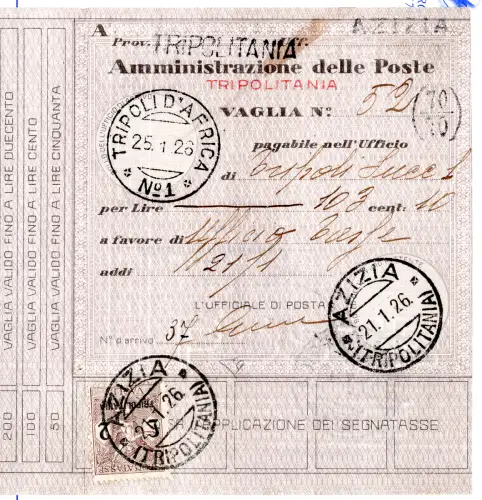 A
Prov. TRIPOLITANIA Uff. AZIZIA
Amministrazione delle Poste
TRIPOLITANIA
VAGLIA N.º 52 (70/10)
pagabile nell'Ufficio
di Tripoli Succ 1
per Lire 103 cent: 10
a favore di Ufficio Tasse
addì 21/1
L'UFFICIALE DI POSTA
N° d'arrivo 37
TRIPOLI D'AFRICA
25.1.26
N° 1
AZIZIA
21.1.26.
(TRIPOLITANIA)
AZIZIA
21.1.26
(TRIPOLITANIA)
APPLICAZIONE DEI SEGNATASSE
VAGLIA VALIDO FINO A LIRE DUECENTO
VAGLIA VALIDO FINO A LIRE CENTO
VAGLIA VALIDO FINO A LIRE CINQUANTA
200
100
50